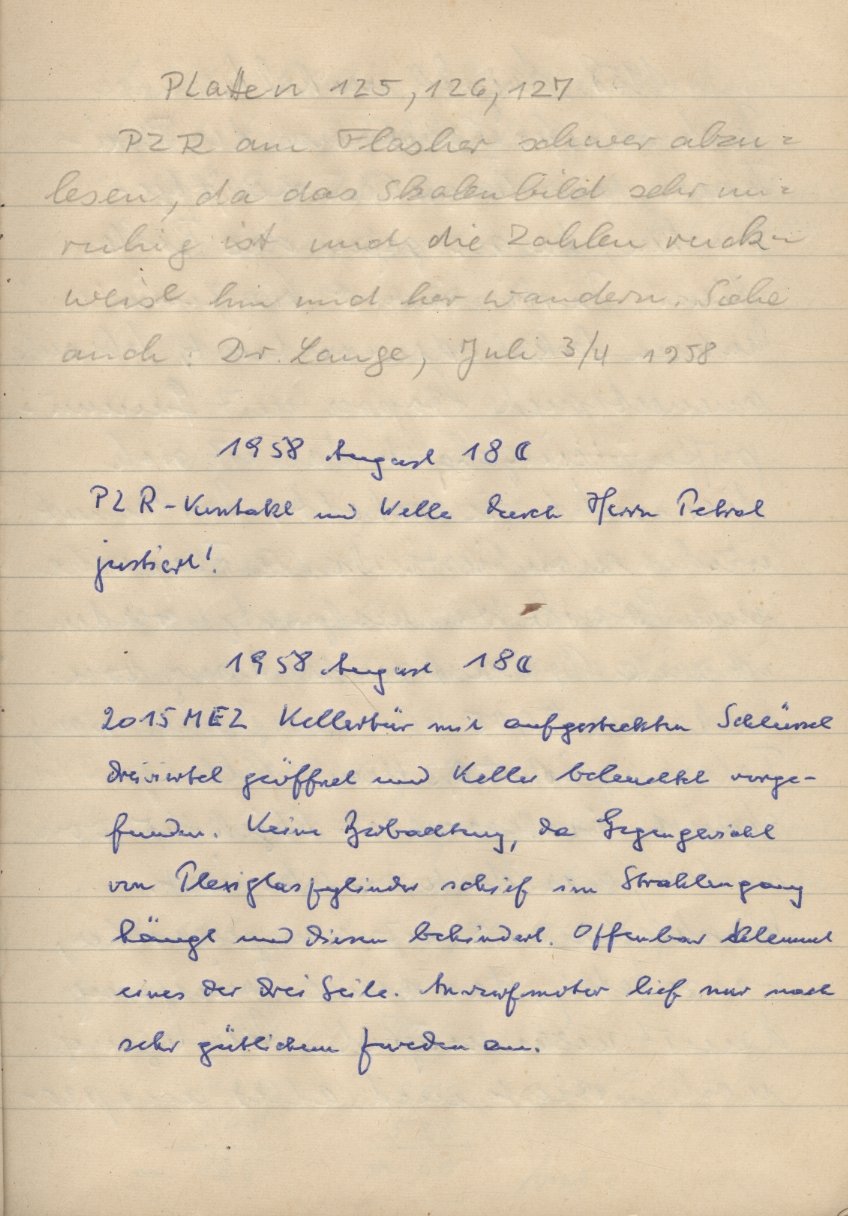 Platten 125, 126, 127
PZR am Flasher schwer abzu=
lesen, da das Skalenbild sehr un=
ruhig ist und die Zahlen ruck=
weise hin und her wandern. Siehe
auch: Dr. Lange, Juli 3/4 1958
1958 August 18 ☾
PZR-Kontakt und Welle durch Herrn
justiert!
1958 August 18 ☾
2015 MEZ Kellertür mit aufgesteckten Schlüssel
dreiviertel geöffnet und Keller beleuchtet vorge-
funden. Keine Beobachtung, da Gegengewicht
von Plexiglaszylinder schief im Strahlengang
hängt und diesen behindert. Offenbar klemmt
eines der drei Seile. Anwurfmotor lief nur nach
sehr gütlichem Zureden an.